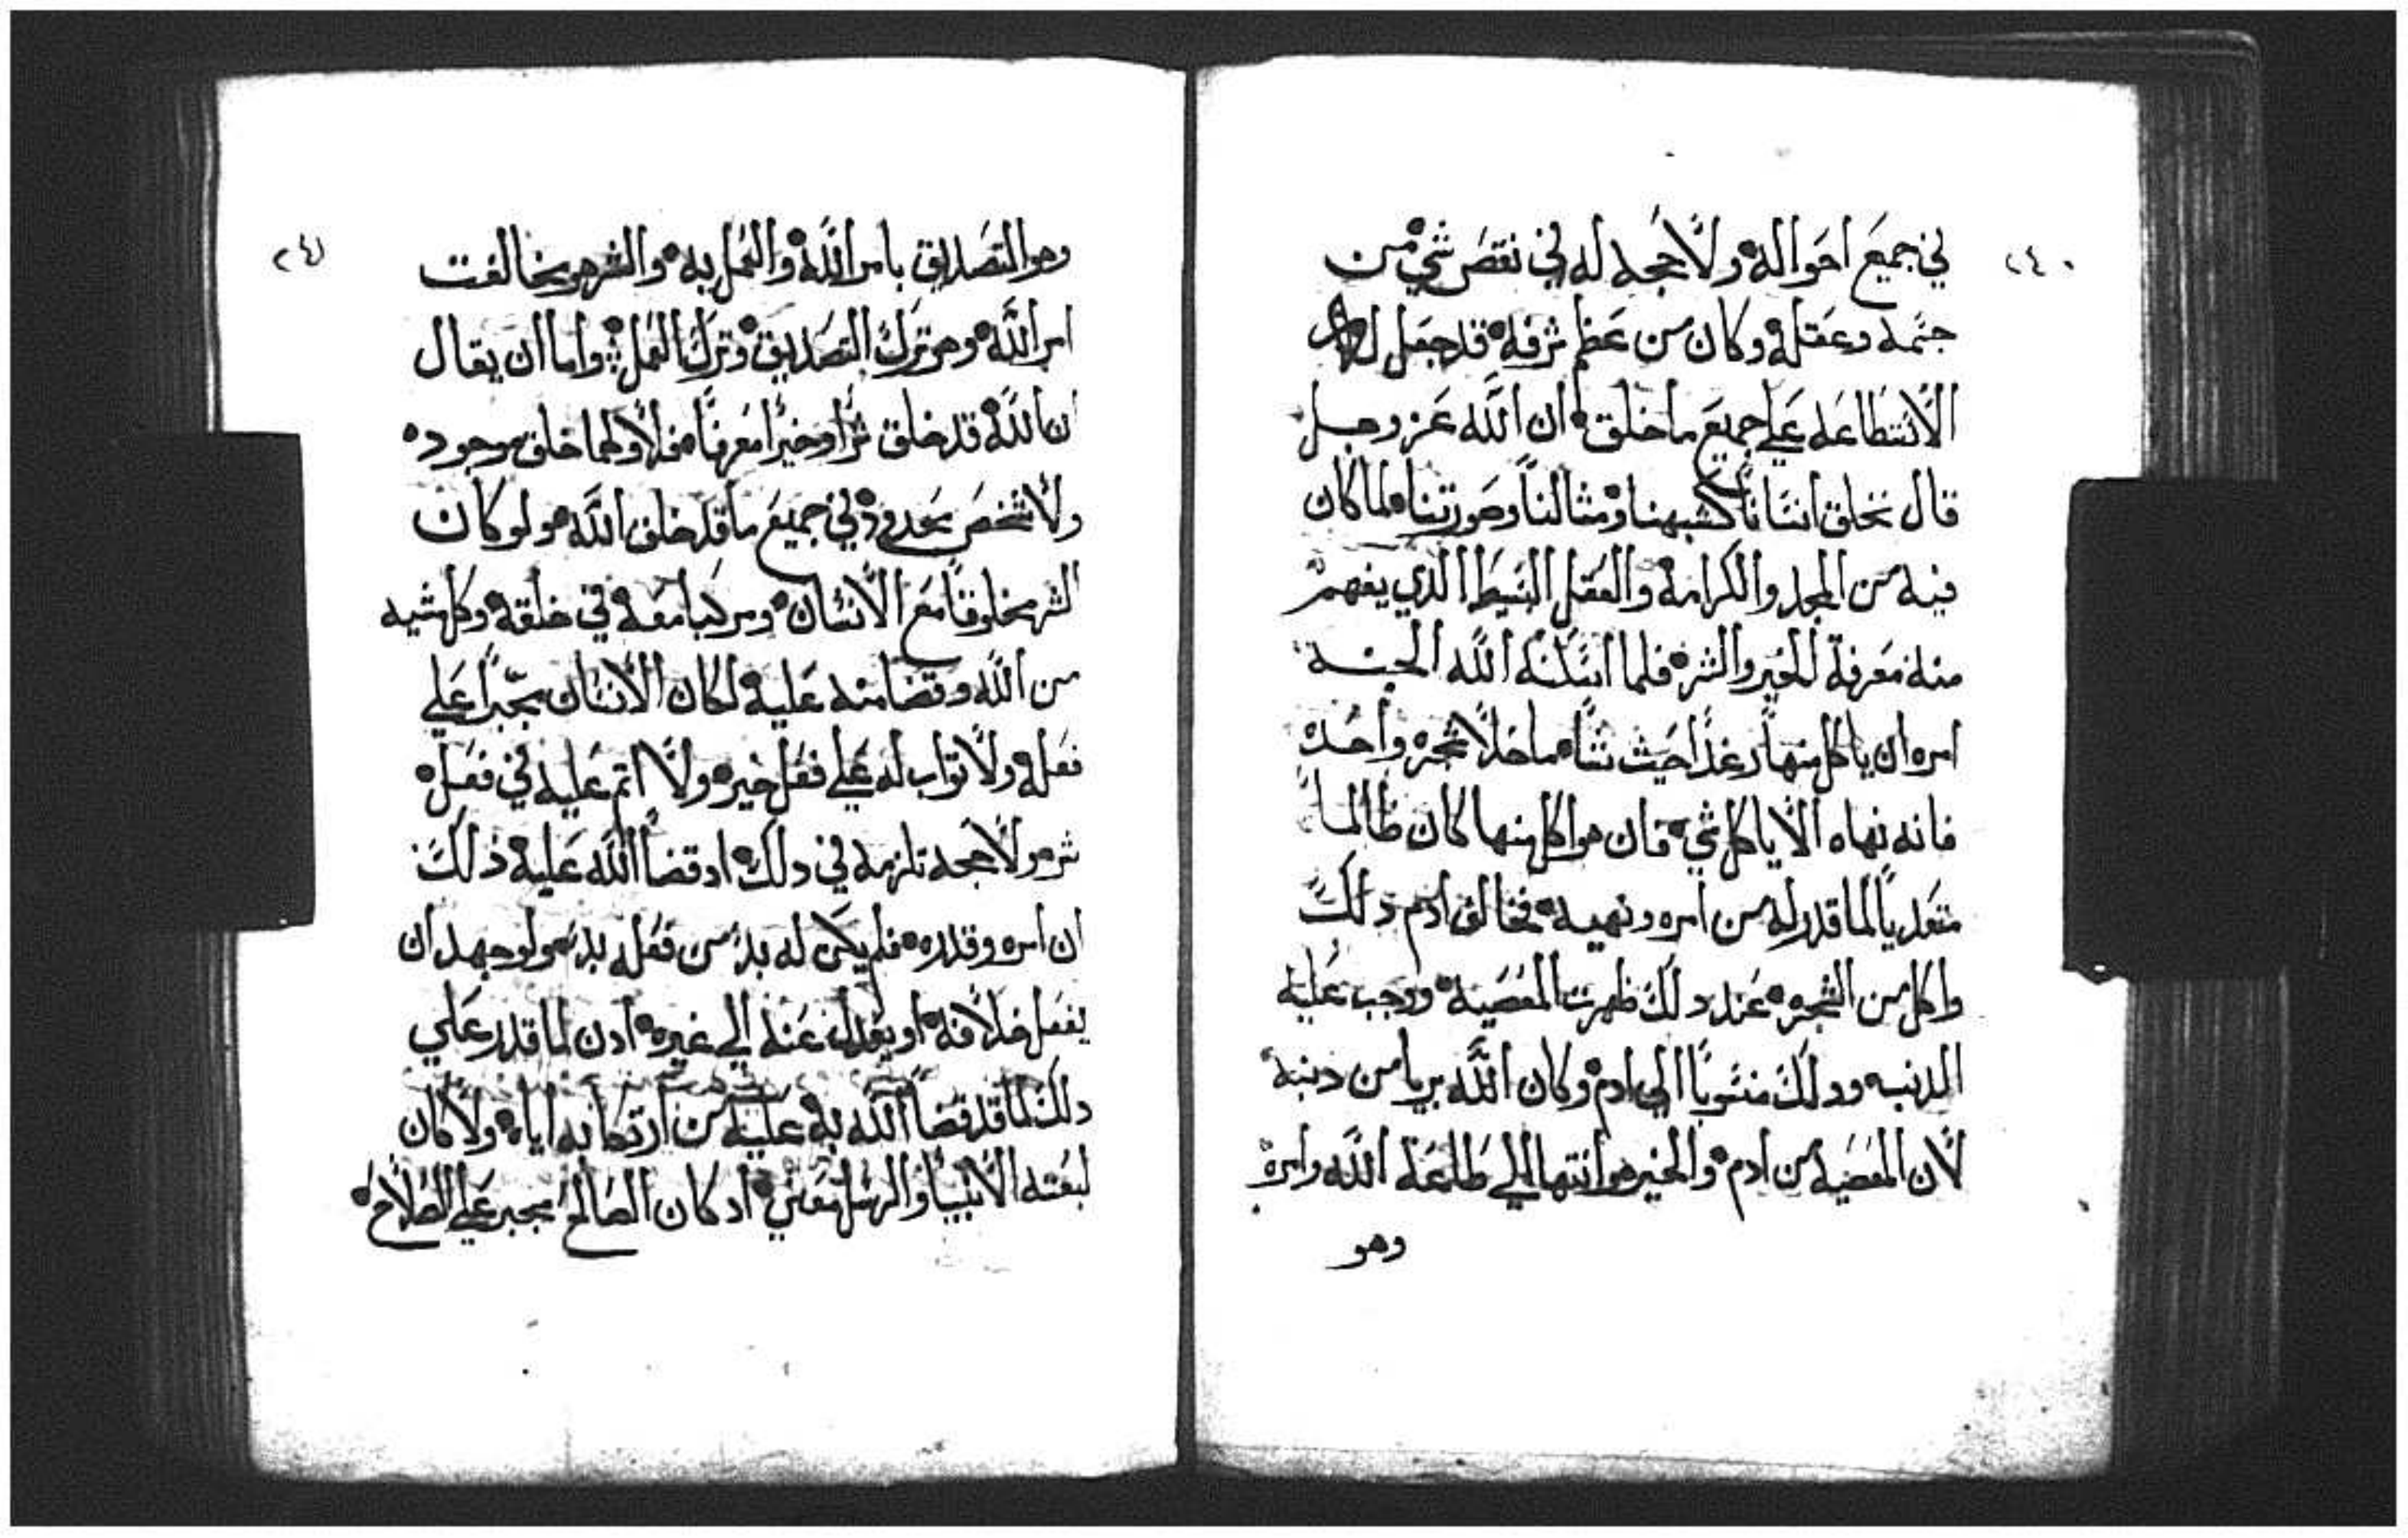 ٢٤٠
في جميع احواله ولا حجه له في نقص شي من
جسمه وعقله وكان من عظم شرفه قد جعل له
الاستطاعه علي جميع ما خلق ان الله عز وجل
قال نخلق انسانا كشبهنا ومثالنا وصورتنا لما كان
فيه من المجد والكرامة والعقل البسيط الذي يفهم
منه معرفة الخير والشر فلما اسكنه الله الجنه
امره ان ياكل منها رغدا حيث شا ما خلا شجره واحده
فانه نهاه الا ياكل شي فان هو اكل منها كان ظالما
متعديا لما قدر له من امره ونهيه فخالف ادم دلك
واكل من الشجره عند دلك ظهرت المعصية ووجب عليه
الدنب ودلك منسوبا الي ادم وكان الله بريا من دنبه
لان المعصية من ادم والخير هو انتها الي طاعة الله وامره
وهو
٢٤١
وهو التصديق بامر الله والعمل به والشر هو مخالفت
امر الله وهو ترك التصديق وترك العمل واما ان يقال
ان الله قد خلق شرا وخيرا معرفا فلا ولهما خلق موجوده
ولا شخص محدود في جميع ما قد خلق الله ولو كان
الشر مخلوقا مع الانسان ومركبا معه في خلقه وكل شيه
من الله وقضا منه عليه لكان الانسان مجبرا علي
فعله ولا تواب له علي فعل خير ولا اتم عليه في فعل
شر ولا حجه تلزمه في دلك اد قضا الله عليه ذلك
ان امره وقدره فلم يكن له بد من فعله بد ولو جهد ان
يفعل خلافه او يعدل عنه الي غيره ادن لما قدر علي
دلك لما قد قضا الله به عليه من ارتكابه اياه ولا كان
لبعته الانبيا والرسل معني اد كان الصالح مجبر علي الصلاح